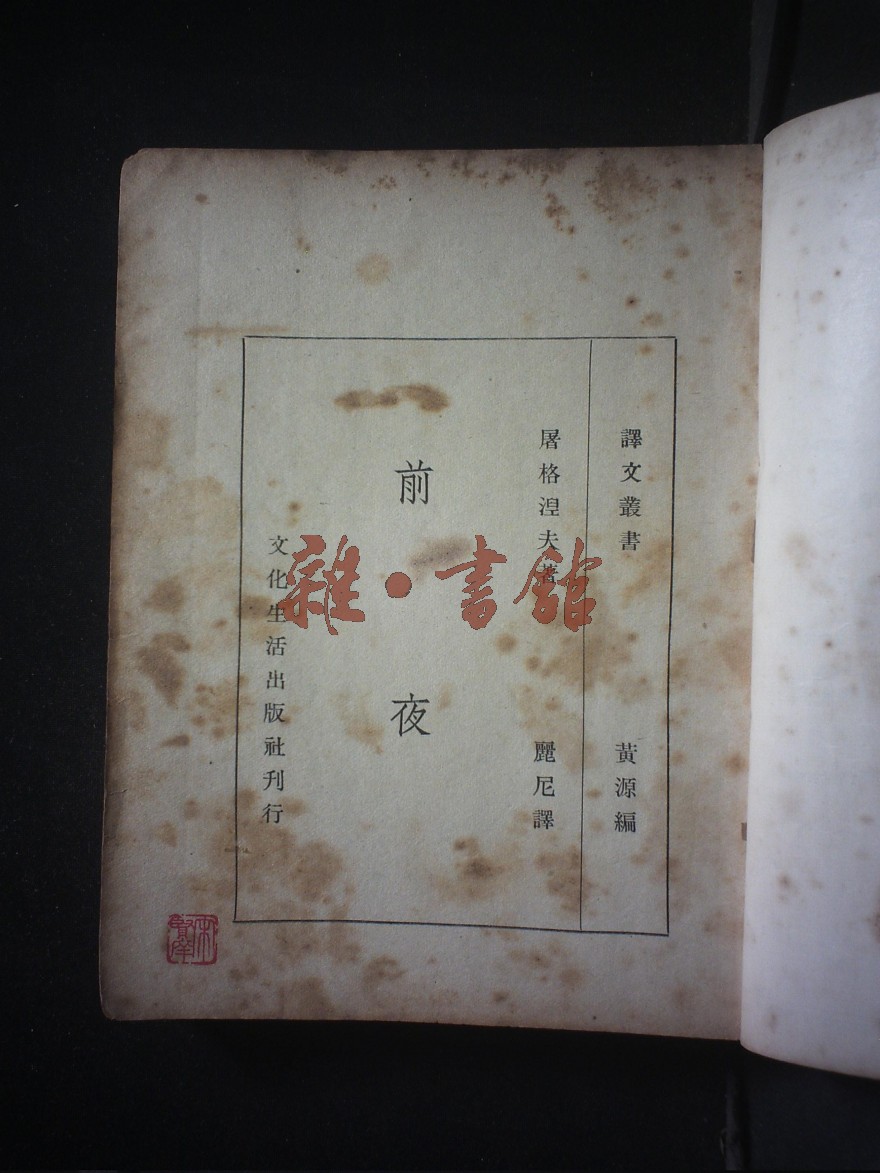 譯文叢書 黃源編
屠格涅夫著 麗尼譯
前夜
文化生活出版社刊行
雜·書館